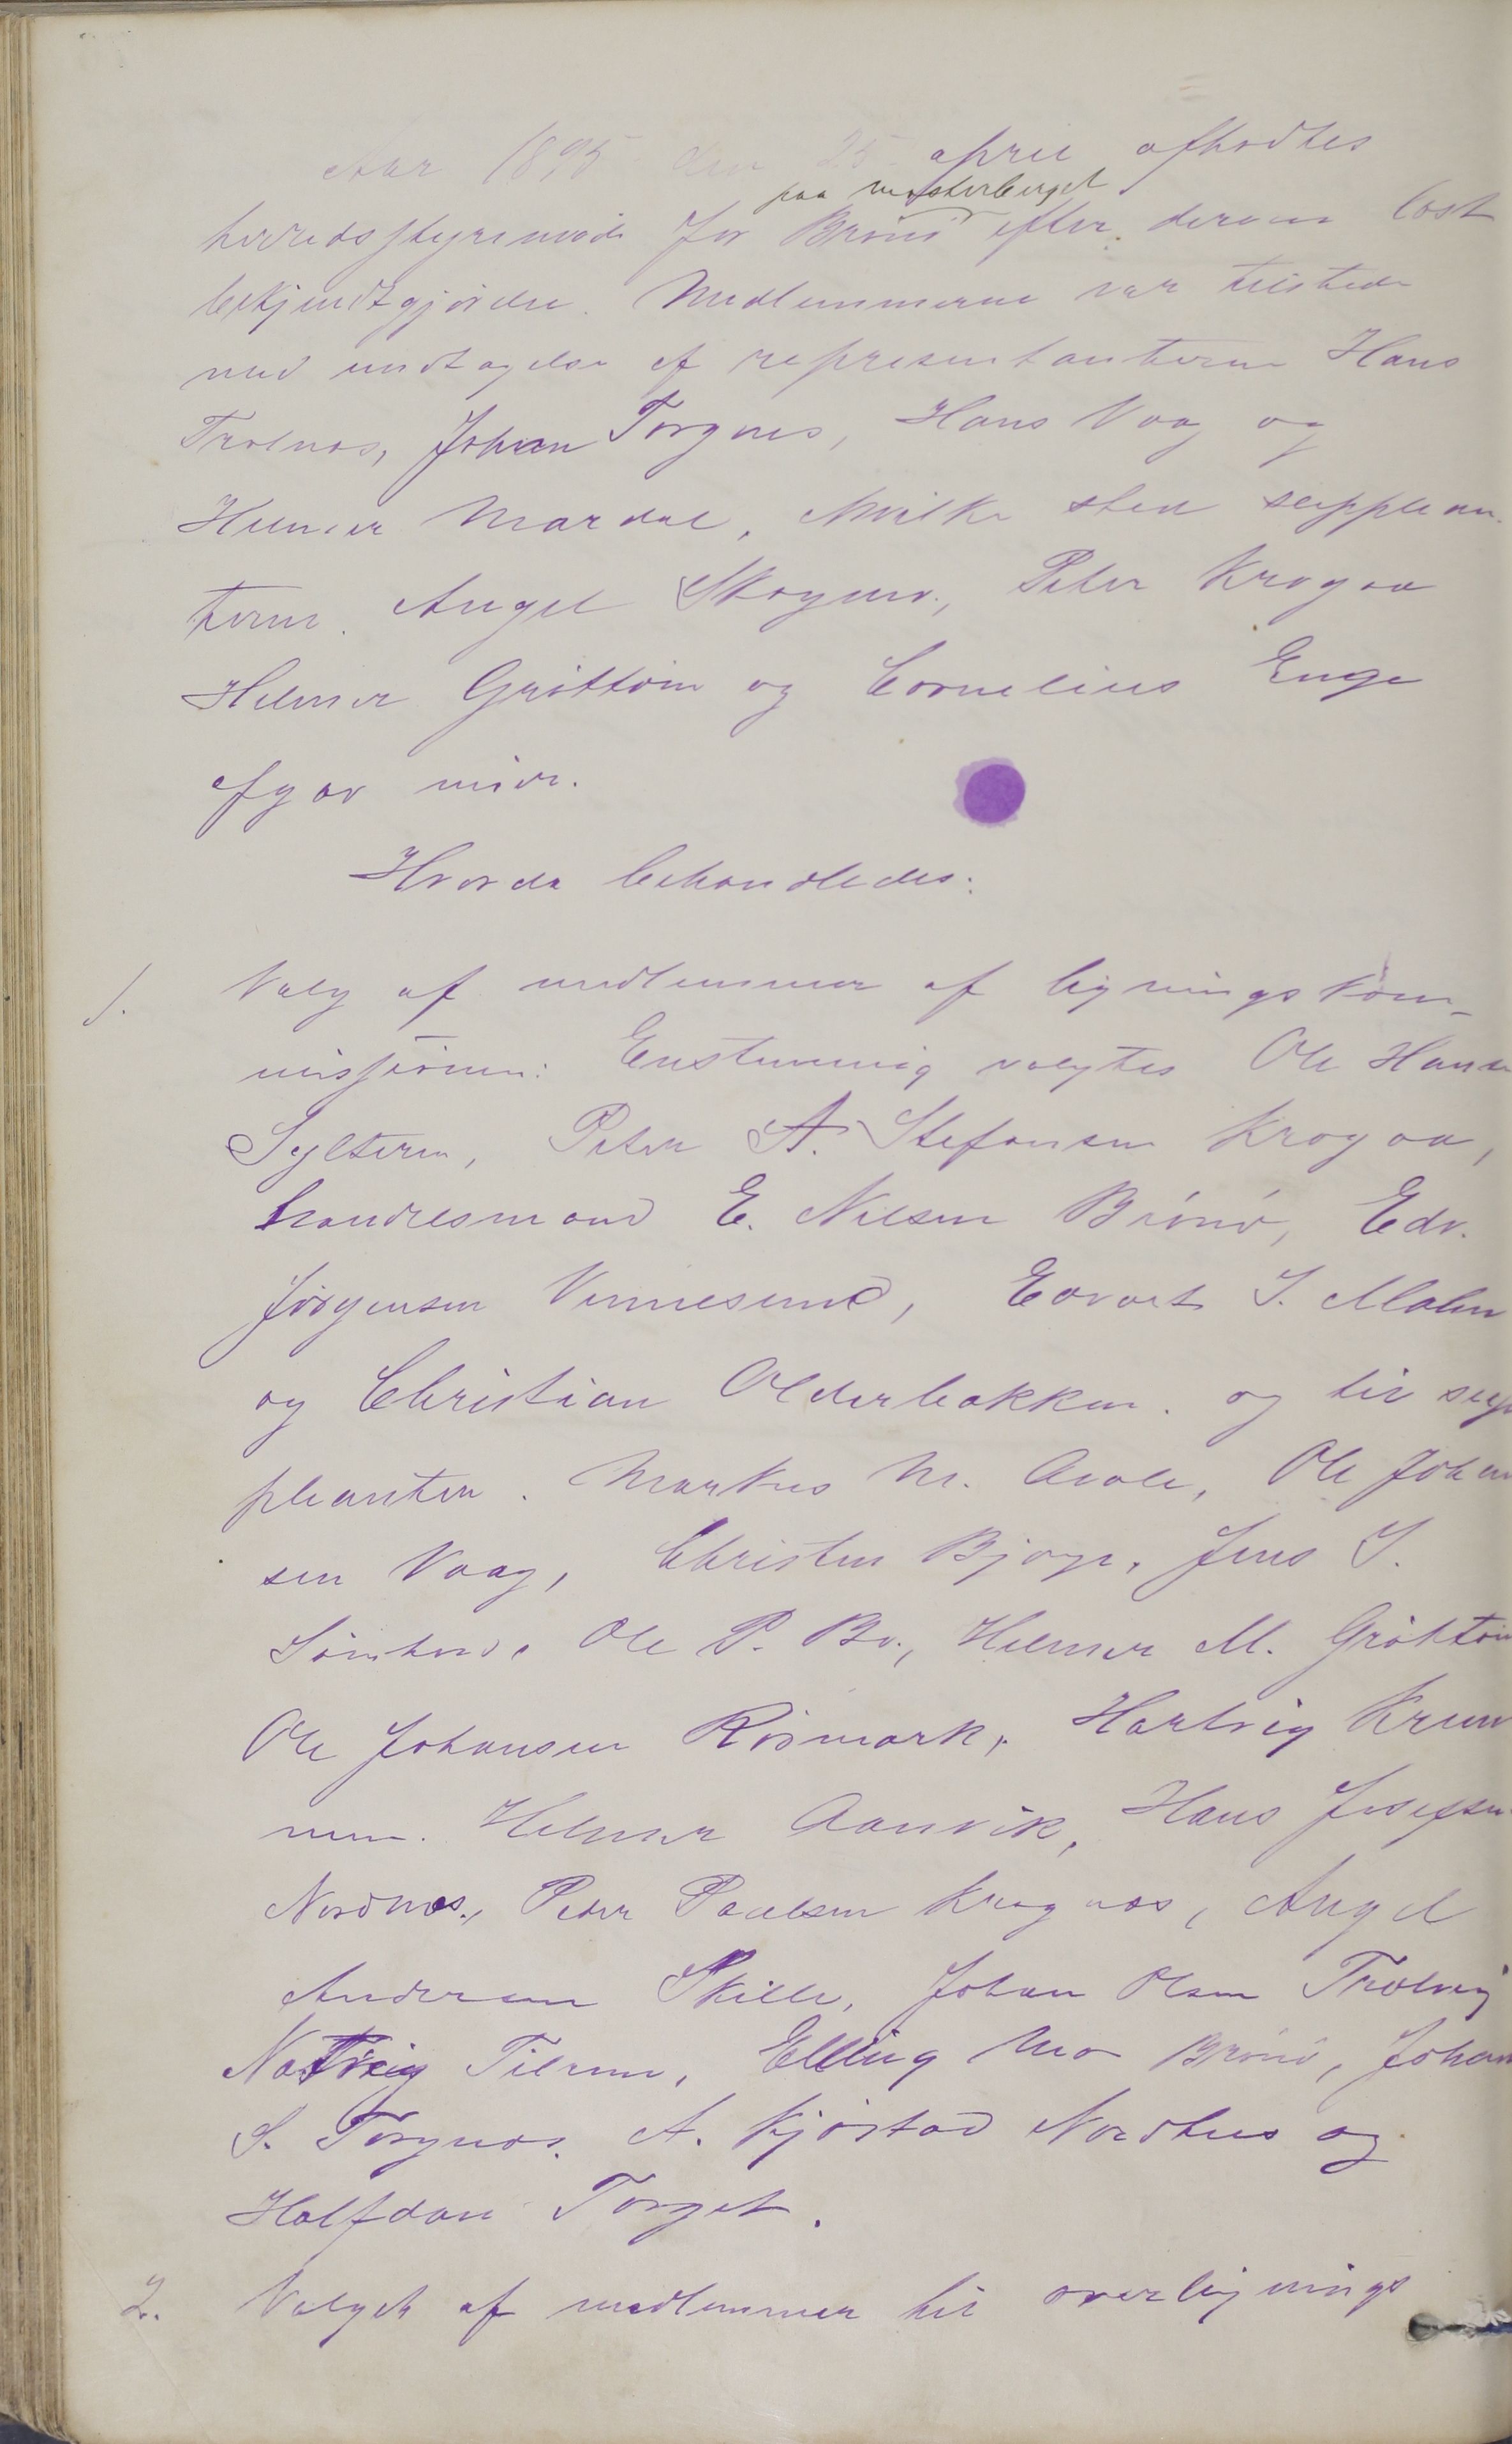 Aar 1895 den 25 april afholdtes
paa
herredsstyremøde for Brønø efter derom løst
bekjendtgjørelse. Medlemmerne var tilstede
med undtagelse af representanterne Hans
Trælnes, Johan Torgnes, Hans Vaag og
Helmer Mardal, hvilkes sted supplean-
terne Angel Skogmo, Peter Krogaa
Helmer Grøttøm og Cornelius Enge
afgav møde.
Hvorda behandledes:
1. Valg af medlemmer af ligningskom-
missionen: Enstemmig valgtes Ole Hansen
Sylteren, Peter A. Stefansen Krogaa,
handelsmand E. Nilsen Brønø, Edv.
Jørgensen Vennesund, Edvart I. Malm
og Christian Olderbakken. og til sup
pleanter. Markus M. Ole Johan
sen Vaag, Christen Bjørge, Jens S.
Sømhovd Ole P. Bø, Helmer M. Grøttøm
Ole Johansen Rømark, Hartvig Krum
men. Helmer Aanvik, Hans Josefsen
Nordnæs, Peder Paulsen Krognæs, Angel
Andersen Skille, Johan Olsen Trælvig
Natvig Tilrem, Elling Mo Brønø, Johan
S. Torgnæs. A. Kjøstad Nordhus og
Halfdan Torget.
2. Valgt af medlemmer til overlignings